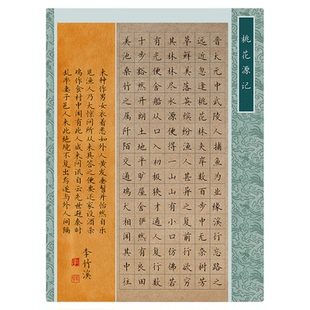 桃花源记
晋太元中武陵人捕鱼为业缘溪行忘路之
远近忽逢桃花林夹岸数百步中无杂树芳
草鲜美落英缤纷渔人甚异之复前行欲穷
其林林尽水源便得一山山有小口仿佛若
有光便舍船从口入初极狭才通人复行数
十步豁然开朗土地平旷屋舍俨然有良田
美池桑竹之属阡陌交通鸡犬相闻其中往
来种作男女衣着悉如外人黄发垂髫并怡然自乐
见渔人乃大惊问所从来具答之便要还家设酒杀
鸡作食村中闻有此人咸来问讯自云先世避秦时
乱率妻子邑人来此绝境不复出焉遂与外人间隔
李竹溪